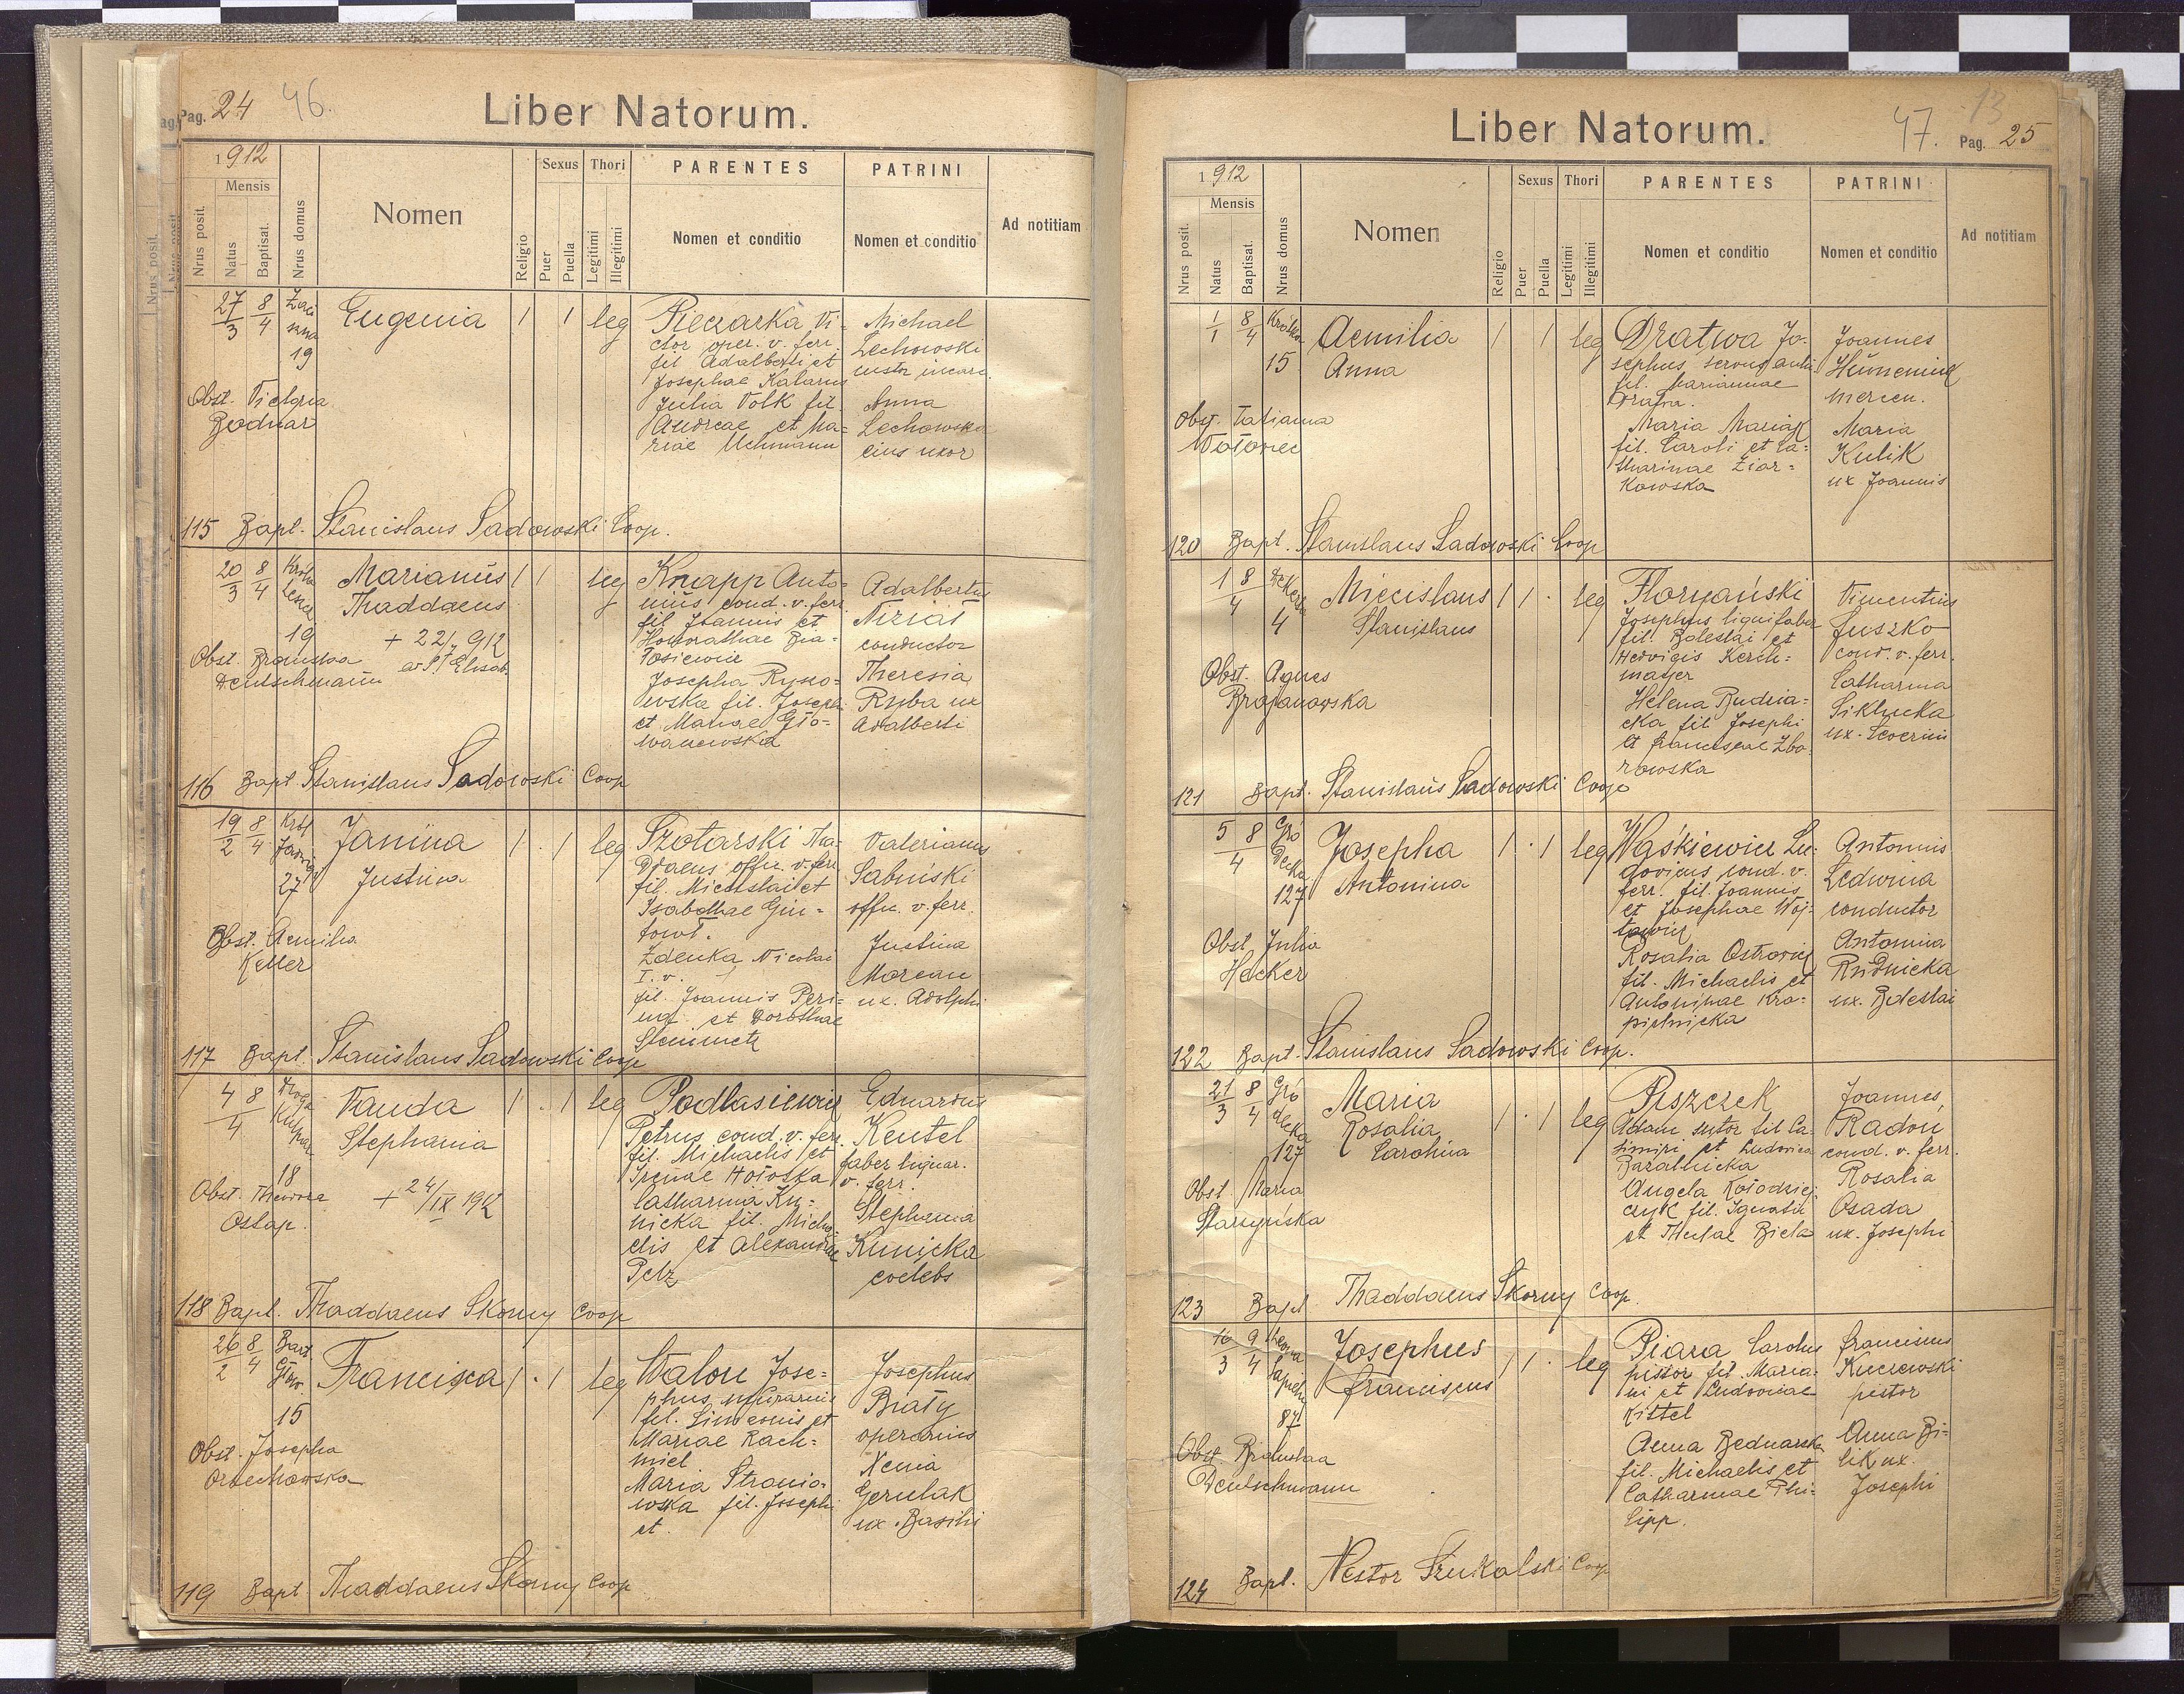 Pag. 24 46.
Liber Natorum.
1912
Mensis
Nrus posit.
Natus
Baptisat.
Nrus domus
Nomen
Religio
Sexus
Puer
Puella
Thori
Legitimi
Illegitimi
PARENTES
Nomen et conditio
PATRINI
Nomen et conditio
Ad notitiam
27/3 8/4
19
Eugenia 1 1 leg
Pieczarka Vi-
ctor oper. v. ferr.
fil Adalberti et
Josephae
Julia Volk fil.
Andreae et Ma-
riae Uchmann
Michael
Lechowski
Anna
Lechowska
eius uxor
Obst. Victoria
Bodnar
115 Bapt. Stanislaus Sadowski Coop.
20/3 8/4
19
Marianus 1 1 leg
Thaddaeus
+ 22/7 912
Obst. Bronislaa
Deutschmann
Knapp Anto-
nius cond. v. ferr.
fil Joannis et
Honorathae Bia-
łosiewicz
Josepha Ryno-
wska fil. Josephi
et Mariae Gło-
waczewska
Adalbertus
Niział
conductor
Theresia
Ryba ux
Adalberti
116 Bapt Stanislaus Sadowski Coop
19/2 8/4
27
Janina 1 . 1 leg
Justina
Obst. Aemilia
Keller
Szotarski Tha-
ddaeus offic. v. ferr
fil. Miecislai et
Isabellae Gin-
towt.
Zdenka Nicolai
I. v.
fil. Joannis Peri-
et Dorothae
Steinmetz
Valerianus
Sabiński
offic. v. ferr.
Justina
Moreau
ux. Adolphi
117 Bapt. Stanislaus Sadowski Coop
4 8/4
18
Vanda 1 . 1 leg
Stephania
+ 24/IX 912
Obst. Theodora
Ostap.
Podlasiewicz
Petrus cond. v. ferr.
fil. Michaelis et
Irenae Hołoska
Catharina Ku-
nicka fil. Micha-
elis et Alexandrae
Pelz
Eduardus
Keutel
faber lignar.
v. ferr.
Stephania
Kunicka
coelebs
118 Bapt. Thaddaeus Skorny Coop
26/2 8/4
Bart
Głow.
15
Francisca 1 . 1 leg
Obst. Josepha
Orzechowska
Walon Jose-
phus
fil. Simeonis et
Mariae Rach-
miel
Maria Stronio-
wska fil. Josephi
et.
Josephus
Biały
operarius
Xenia
Gerulak
ux. Basilii
119 Bapt Thaddaeus Skorny Coop
Liber Natorum.
47. 13
Pag. 25
1912
Mensis
Nrus posit.
Natus
Baptisat.
Nrus domus
Nomen
Religio
Sexus
Puer
Puella
Thori
Legitimi
Illegitimi
PARENTES
Nomen et conditio
PATRINI
Nomen et conditio
Ad notitiam
1/1 8/4
15
Aemilia 1 1 leg
Anna
Obst. Tatianna
Dratwa Jo-
sephus servus
fil. Mariannae
Dratwa.
Maria Mariak
fil. Caroli et Ca-
tharinae Ziar-
kowska
Joannes
mercen.
Maria
Kulik
ux Joannis
120 Bapt. Stanislaus Sadowski Coop
1 8/4
4
Miecislaus 1 1 . leg
Stanislaus
Obst. Agnes
Floryański
Josephus lignifaber
fil. Boleslai et
Hedvigis Kerch-
majer
Helena Rudnia-
cka fil Josephi
et Franciscae Zbo-
rowska
Vincentius
Juszko
cond. v. ferr.
Catharina
Siklucka
ux. Severini
121 Bapt. Stanislaus Sadowski Coop
5 8/4
Gró
decka
127
Josepha 1 . 1 leg
Antonina
Obst. Julia
Hecker
Waśkiewicz Lu-
dovicus cond. v.
ferr. fil. Joannis
et Josephae Woj-
towicz
Rosalia Ostrowicz
fil. Michaelis et
Antoninae Kro-
piwnicka
Antonius
Ledwina
conductor
Antonina
Rudnicka
ux. Boleslai
122 Bapt. Stanislaus Sadowski Coop.
21/3 8/4
Gró
decka
127
Maria 1 . 1 leg
Rosalia
Carolina
Obst Maria
Starzyńska
Piszczek
Adam sutor fil Ca-
simiri et Ludovica
Angela Kołodziej-
czyk fil. Ignatii
et Theclae Biela
Joannes
Radoń
cond. v. ferr.
Rosalia
Osada
ux. Josephi
123 Bapt Thaddaeus Skorny Coop.
16/3 9/4
Leona
Sapiehy
87
Josephus 1 1 . leg
Franciscus
Obst. Bronislaa
Deutschmann
Piara Carolus
pistor fil. Maria-
ni et Ludovicae
Kittel
Anna Bednarska
fil. Michaelis et
Catharinae Phi-
lipp.
Franciscus
Kuczewski
pistor
Anna Bi-
lik ux.
Josephi
124 Bapt. Nestor Szukalski Coop